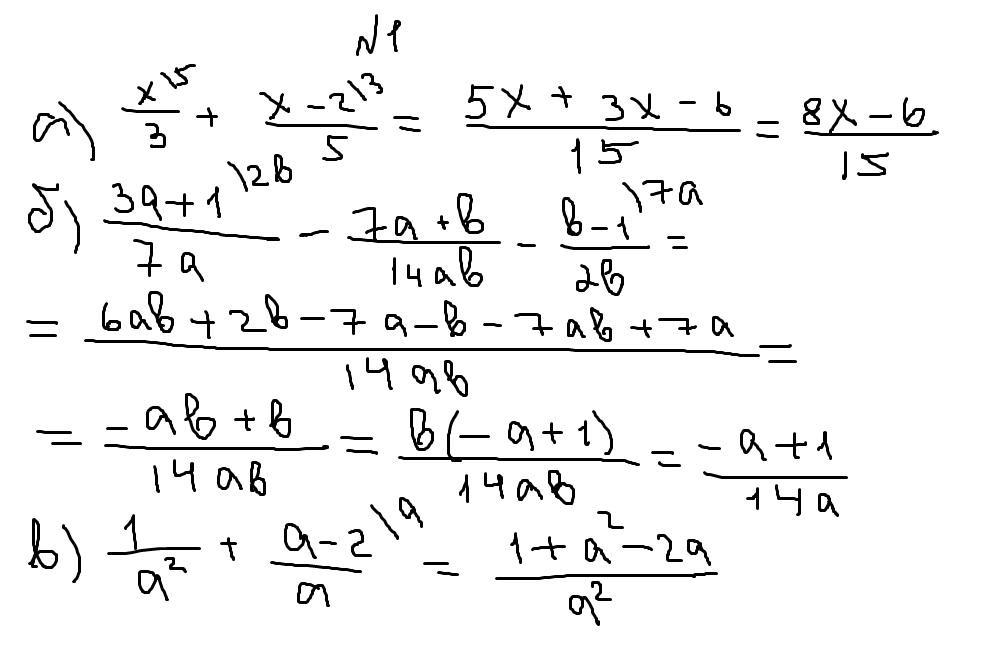 №1
а) x\5/3 + x-2\3/5 = 5x + 3x - 6/15 = 8x-6/15
б) 3a+1\2b/7a - 7a+b/14ab - b-1\7a/2b =
= 6ab+2b-7a-b-7ab+7a/14ab =
= -ab+b/14ab = b(-a+1)/14ab = -a+1/14a
в) 1/a² + a-2\a/a = 1+a²-2a/a²